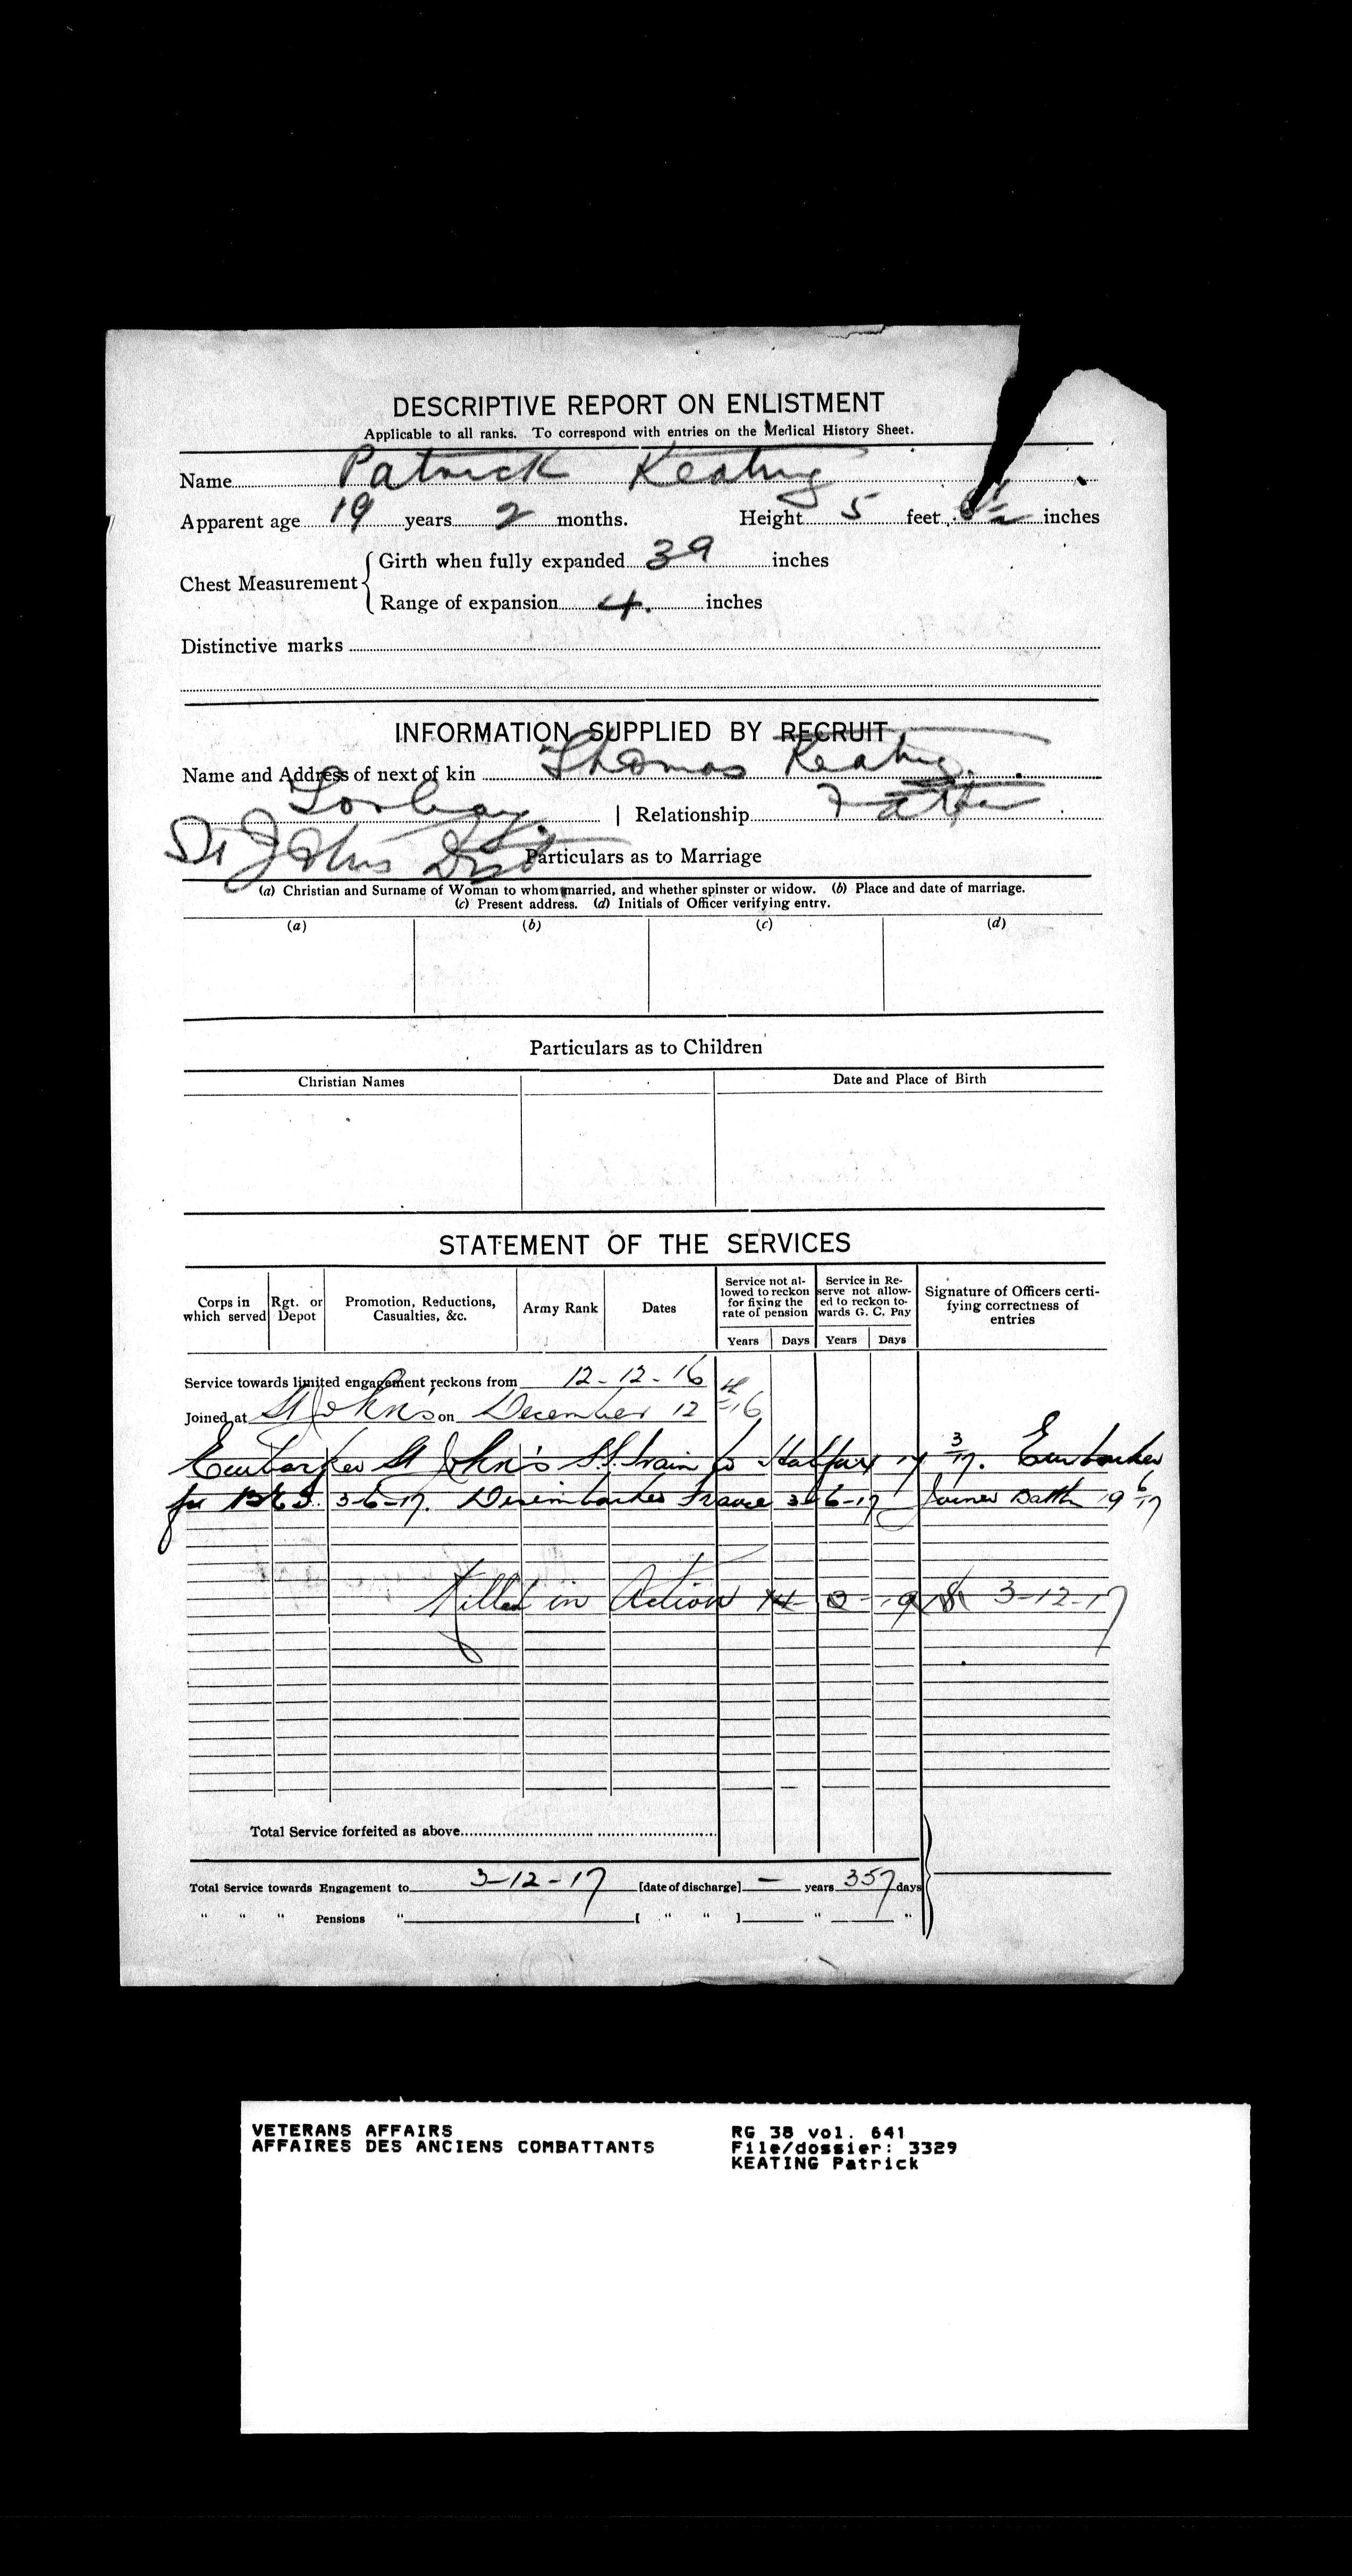 DESCRIPTIVE REPORT ON ENLISTMENT
Applicable to all ranks. To correspond with entries on the Medical History Sheet.
Name Patrick Keating
Apparent age 19 years 2 months. Height 5 feet 1/2 inches
Chest Measurement
Girth when fully expanded 39 inches
Range of expansion 4. inches
Distinctive marks
INFORMATION SUPPLIED BY RECRUIT
Name and Address of next of kin Thomas Keating.
Torbay. | Relationship Father
St John's Dist
Particulars as to Marriage
(a) Christian and Surname of Woman to whom married, and whether spinster or widow. (b) Place and date of marriage.
(c) Present address. (d) Initials of Officer verifying entry.
(a) (b) (c) (d)
Particulars as to Children
Christian Names Date and Place of Birth
STATEMENT OF THE SERVICES
Corps in which served Rgt. or Depot Promotion, Reductions, Casualties, &c. Army Rank Dates Service not allowed to reckon for fixing the rate of pension Service in Reserve not allowed to reckon towards G. C. Pay Signature of Officers certifying correctness of entries
Years Days Years Days
Service towards limited engagement reckons from 12-12-16
Joined at St John's on December 12 16
Embarked St John's S.S. to Halifax 3 17. Embarked
for B.E.F. 3-6-17. Disembarked France 3-6-17 Joined Battn 19 6 17
Killed in Action 3-12-17
Total Service forfeited as above
Total Service towards Engagement to 3-12-17 [date of discharge] — years 357 days
" " " Pensions " [ " " ] " "
VETERANS AFFAIRS RG 38 vol. 641
AFFAIRES DES ANCIENS COMBATTANTS File/dossier: 3329
KEATING Patrick